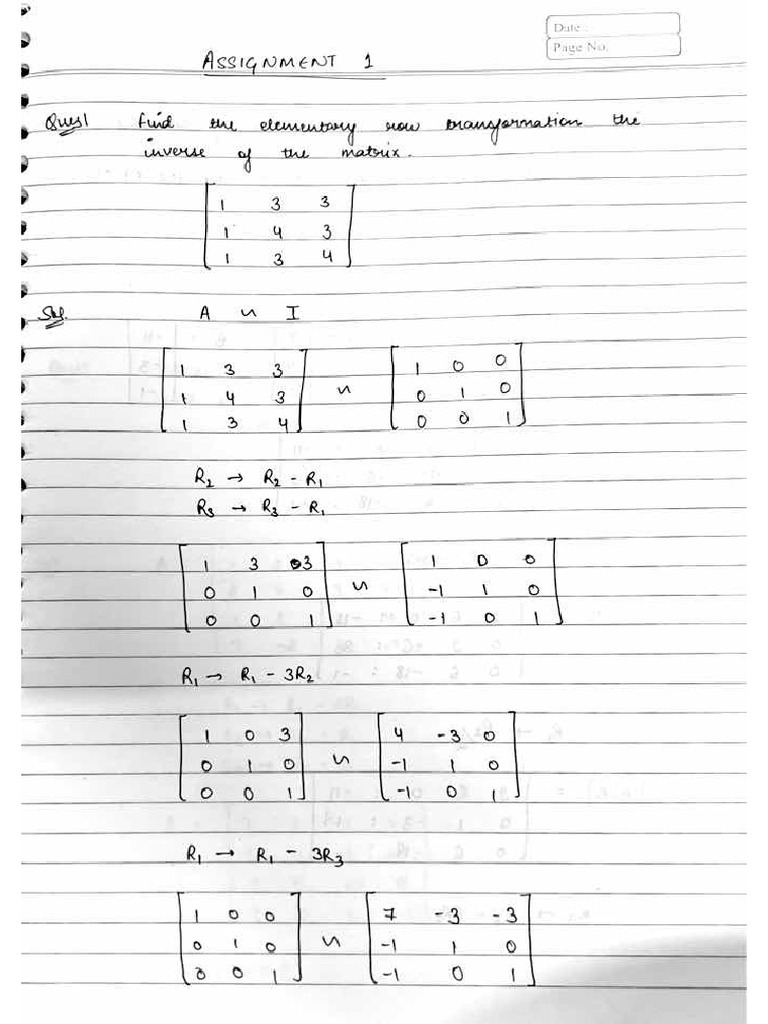 Date :
Page No.
ASSIGNMENT 1
Ques1 Find the elementary row transformation the
inverse of the matrix.
1 3 3
1 4 3
1 3 4
Sol. A ~ I
1 3 3 ~ 1 0 0
1 4 3 0 1 0
1 3 4 0 0 1
R2 → R2 - R1
R3 → R3 - R1
1 3 3 ~ 1 0 0
0 1 0 -1 1 0
0 0 1 -1 0 1
R1 → R1 - 3R2
1 0 3 ~ 4 -3 0
0 1 0 -1 1 0
0 0 1 -1 0 1
R1 → R1 - 3R3
1 0 0 ~ 7 -3 -3
0 1 0 -1 1 0
0 0 1 -1 0 1